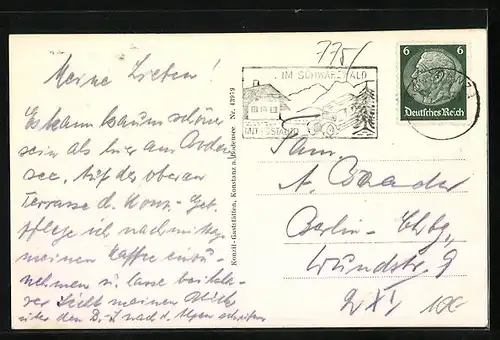 775/
Meine Lieben!
Es kann kaum schöner
sein als hier am Boden-
see. Auf der oberen
Terrasse d. Konz.-Gst.
pflege ich nachmittags
meinen Kaffee einzu-
nehmen u. lasse bei kla-
rer Sicht meinen Blick
über den B. nach d. Alpen schweifen
Konzil-Gaststätten, Konstanz a. Bodensee Nr. 43979
IM SCHWARZWALD
MIT
6 6
Deutsches Reich
Fam.
A.
Berlin - Chbg.
Wundtstr. 9
100